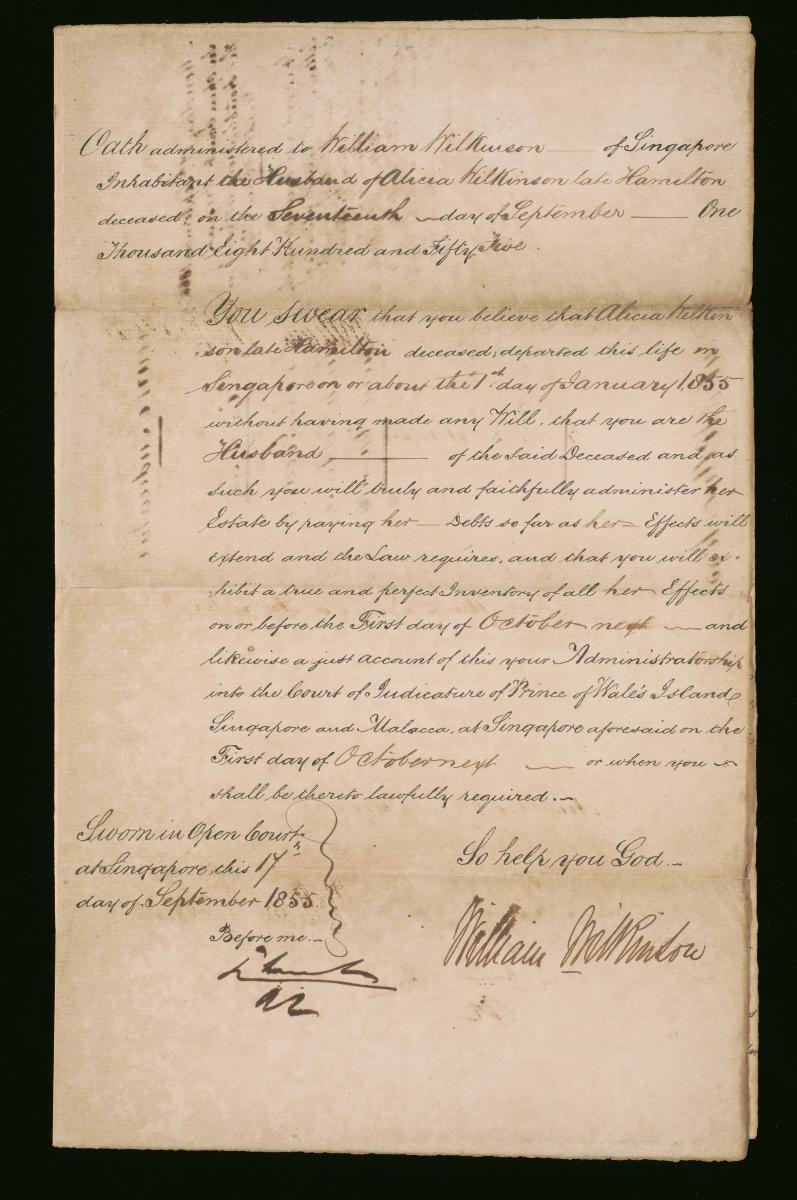 Oath administered to William Wilkinson — of Singapore
Inhabitant the Husband of Alicia Wilkinson late Hamilton
deceased, on the Seventeenth — day of September — One
Thousand Eight Hundred and Fifty Five.
You swear that you believe that Alicia Wilkin
son late Hamilton deceased, departed this life in
Singapore on or about the 1st day of January 1855
without having made any Will, that you are the
Husband — of the said Deceased and as
such you will truly and faithfully administer her
Estate by paying her — Debts so far as her — Effects will
extend and the Law requires, and that you will ex-
hibit a true and perfect Inventory of all her Effects
on or before the First day of October next — and
likewise a just account of this your Administratorship
into the Court of Judicature of Prince of Wale's Island
Singapore and Malacca, at Singapore aforesaid on the
First day of October next — or when you
shall be thereto lawfully required.—
Sworn in Open Court
at Singapore this 17th
day of September 1855
So help you God.—
Before me.—
William Wilkinson